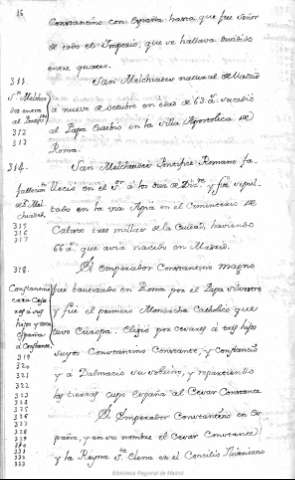 16
Constantino con España hasta que fue señor
de todo el Imperio, que se hallava dividido
entre quatro.
311.
San Melchiades natural de Madrid
Sn. Melchia
des entra
al Pontifdo
312
313
a nueve de octubre en edad de 63. as. sucedio
al Papa Eusebio en la silla Apostolica de
Roma.
314.
San Melchiades Pontifice Romano fa-
fallecimto
de S. Mel
chiades
315
316
317
llecio en el Sr. a los diez de Dizre. y fue sepul-
tado en la via Apia en el Cimenterio de
Calixto tres millas de la Ciudad, haviendo
66 as. que avia nacido en Madrid.
318.
El emperador Constantino magno
Constantino
cria en Cesa
res a sus
hijos y da a
España
a Constante.
319
320
321
322
323
324
325
326
327
328
fue bautizado en Roma por el Papa Silvestre
y fue el primero Monarcha Catholico que
tuvo Europa. Eligio por cesares a tres hijos
suyos Constantino Constante, y Constancio
y a Dalmacio su sobrino, y repartiendo
las tierras cupo España al Cesar Constante
El Emperador Constantino en Es-
paña, y en su nombre el Cesar Constante
y la Reyna Sta. Elena en el Concilio
Biblioteca Regional de Madrid